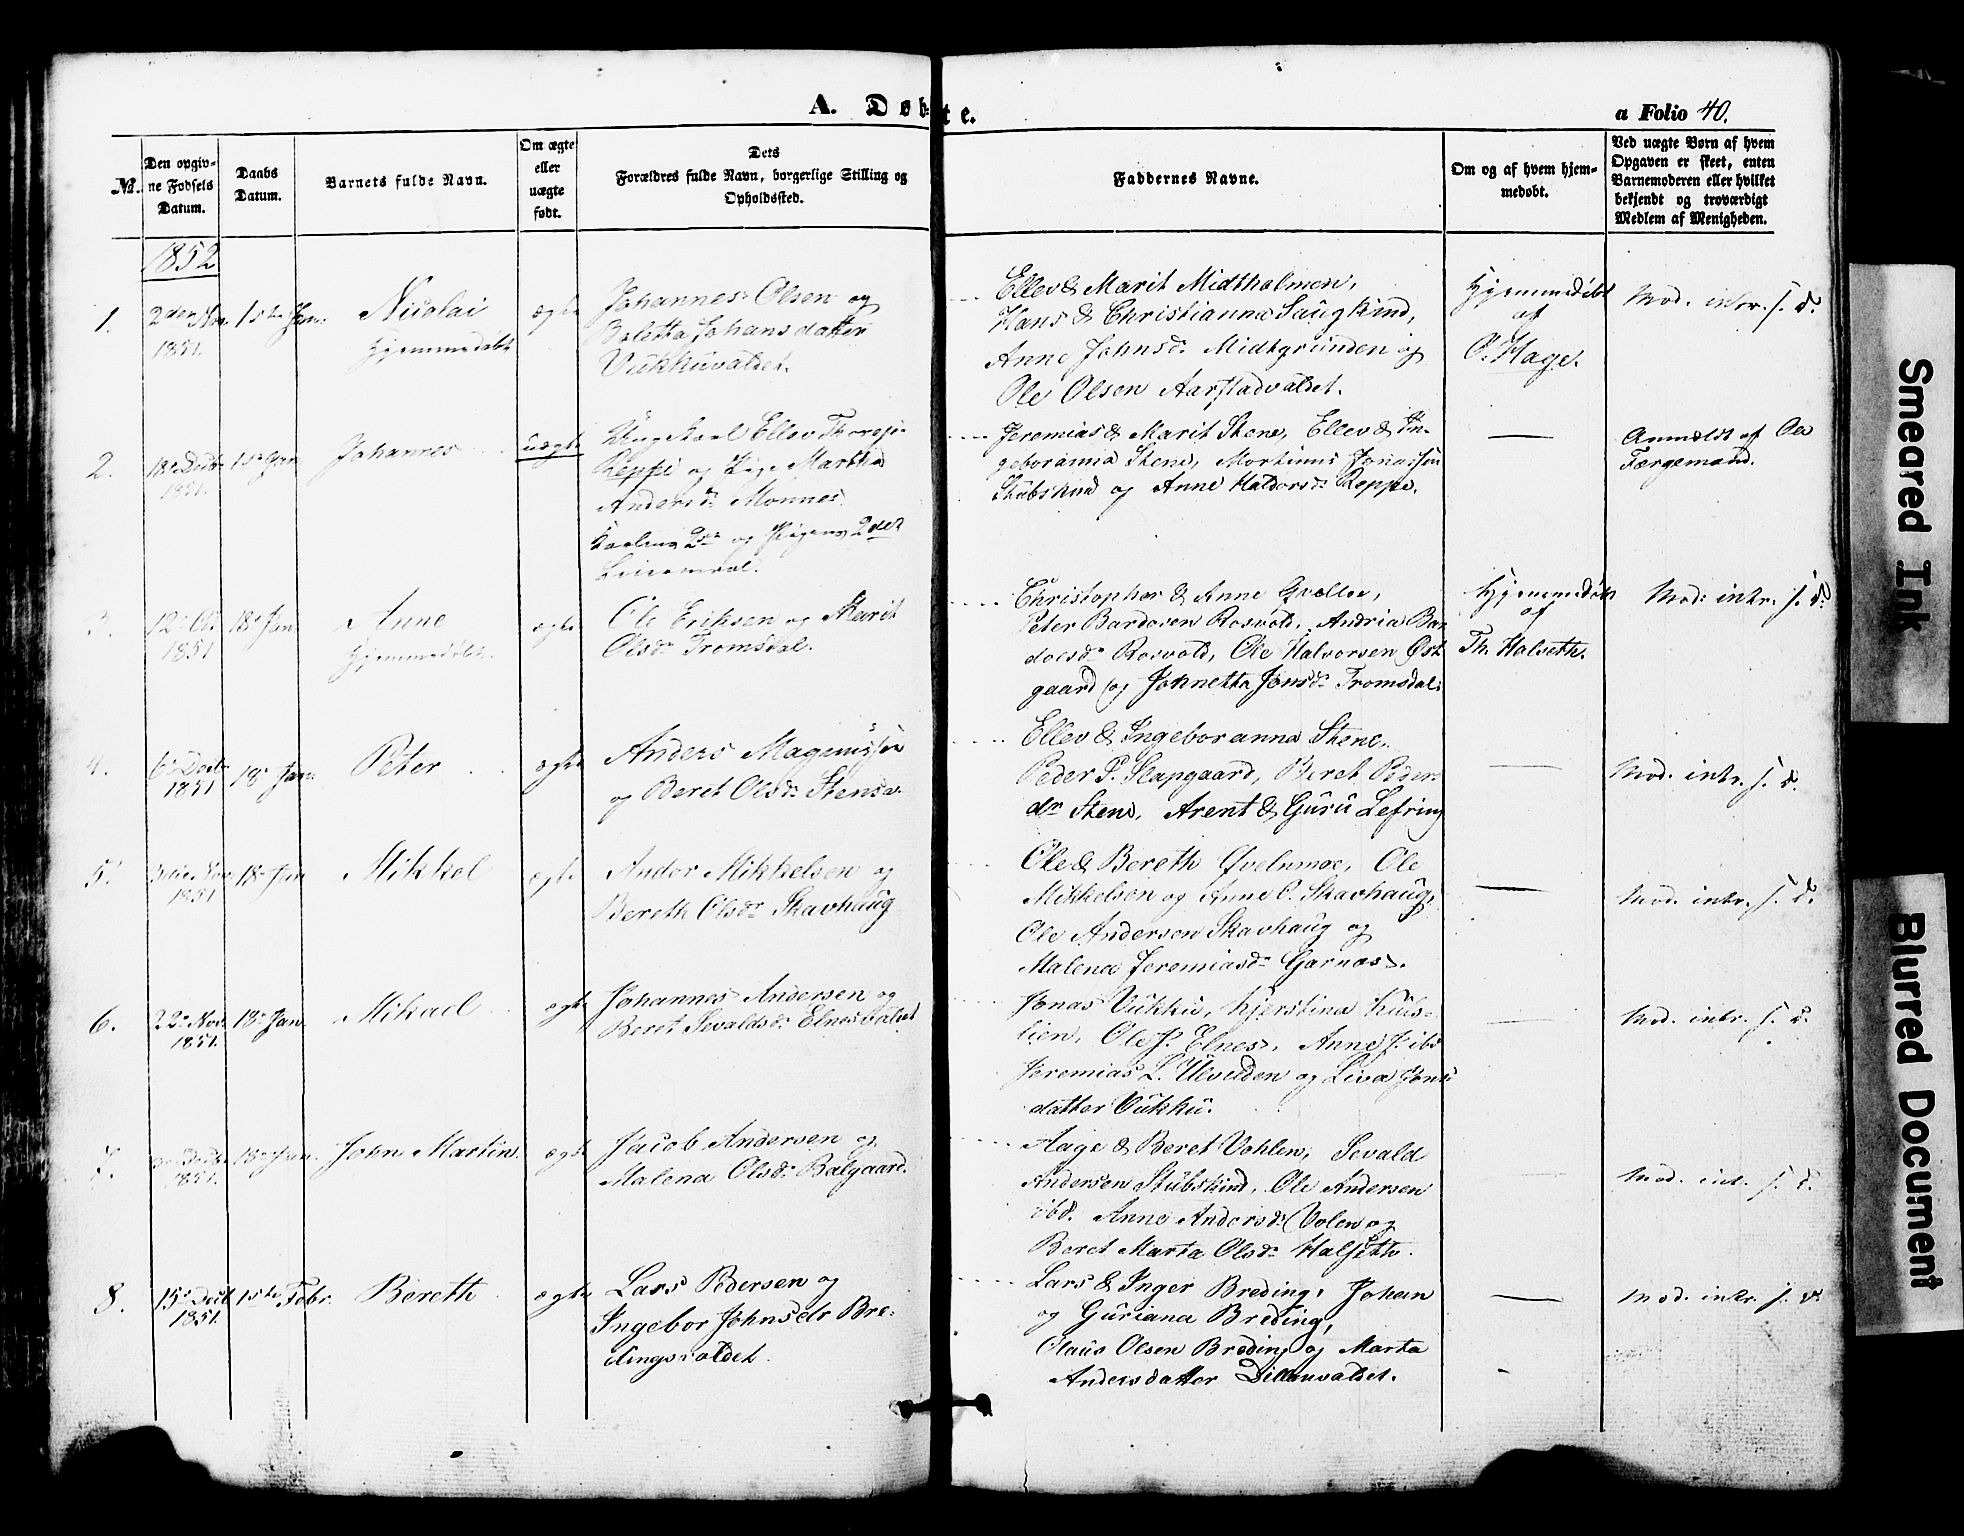 A. Døbte.
a Folio 40.
№.
Den opgiv-
ne Fødsels
Datum.
Daabs
Datum.
Barnets fulde Navn.
Om ægte
eller
uægte
født.
Dets
Forældres fulde Navn, borgerlige Stilling og
Opholdssted.
Faddernes Navne.
Om og af hvem hjem-
medøbt.
Ved uægte Børn af hvem
Opgaven er skeet, enten
Barnemoderen eller hvilket
bekjendt og troværdigt
Medlem af Menigheden.
1852
1.
2den Nov.
1851.
1ste Jan.
Nicolai
Hjemmedøbt
ægte
Johannes Olsen og
Boletta Johansdatter
Vukkuvaldet.
Ellev & Marit Midtholmen,
Hans & Christianna Saugkind,
Anne Johnsdr Midtgrunden og
Ole Olsen Aarstadvaldet.
Hjemmedøbt
af
O. Hage.
Mod. intr. s. d.
2.
18de Decbr
1851.
1ste Jan
Johannes
uægte
Ungkarl Ellev Thorsjr.
Reppe og Pige Martha
Andersdr Monnes.
Karlens 2det og Pigens 2det
Leiermaal.
Jeremias & Marit Stene, Ellev & In-
geboranna Stene, Mortinus Jonassen
Stubskind og Anne Haldorsdr Reppe.
Anmeldt af Ole
Færgemand.
3.
12te
1851
18de Jan.
Anne
Hjemmedøbt.
ægte
Ole Eriksen og Marit
Olsdr Tromsdal.
Christopher & Anne Qvelloe,
Peter Bardosen Rosvold, Andria Bar
doesdr Rosvold, Ole Halvorsen Øst
gaard og Johnetta Jonsdr Tromsdal.
Hjemmedøbt
af
Th. Halseth.
Mod. intr. s. d.
4.
6te Decbr
1851
18de Jan.
Peter
ægte
Anders Magnussen
og Beret Olsdr Stensa.
Ellev & Ingeboranna Stene.
Peder P. Slapgaard, Beret Peders
dr Stene, Arent & Guru Lefring
Mod. intr. s. d.
5.
Nov.
1851
18de Jan
Mikkel
ægte
Andor Mikkelsen og
Bereth Olsdr Skavhaug
Ole & Bereth Qvelmoe, Ole
Mikkelsen og Anne O. Skavhaug,
Ole Andersen Skavhaug og
Malena Jeremiasdr Garnæs.
Mod. intr. s. d.
6.
22de Nov.
1851.
18de Jan.
Mikael
ægte
Johannes Andersen og
Beret Sevaldsdr Elnesvaldet
Jonas Vukku, Kjerstina Kius-
lien, Ole J. Elnes, Anne J. ibd
Jeremias L. Ulvilden og Liva Jons
datter Vukku.
Mod. intr. s. d.
7.
Decbr
1851.
18de Jan.
John Martin.
ægte
Jacob Andersen og
Malena Olsdr Balgaard.
Aage & Beret Vohlen, Sevald
Andersen Stubskind, Ole Andersen
ibd. Anne Andersdr Volen og
Beret Marta Olsdr Halseth.
Mod. intr. s. d.
8.
15de Decb.
1851.
1ste Febr.
Bereth
ægte
Lars Pedersen og
Ingebor Johnsdr Bre-
dingsvaldet.
Lars & Inger Breding, Johan
og Guriana Breding,
Claus Olsen Breding og Marta
Andersdatter Dillanvaldet.
Mod. intr. s. d.
Smeared Ink
Blurred Document